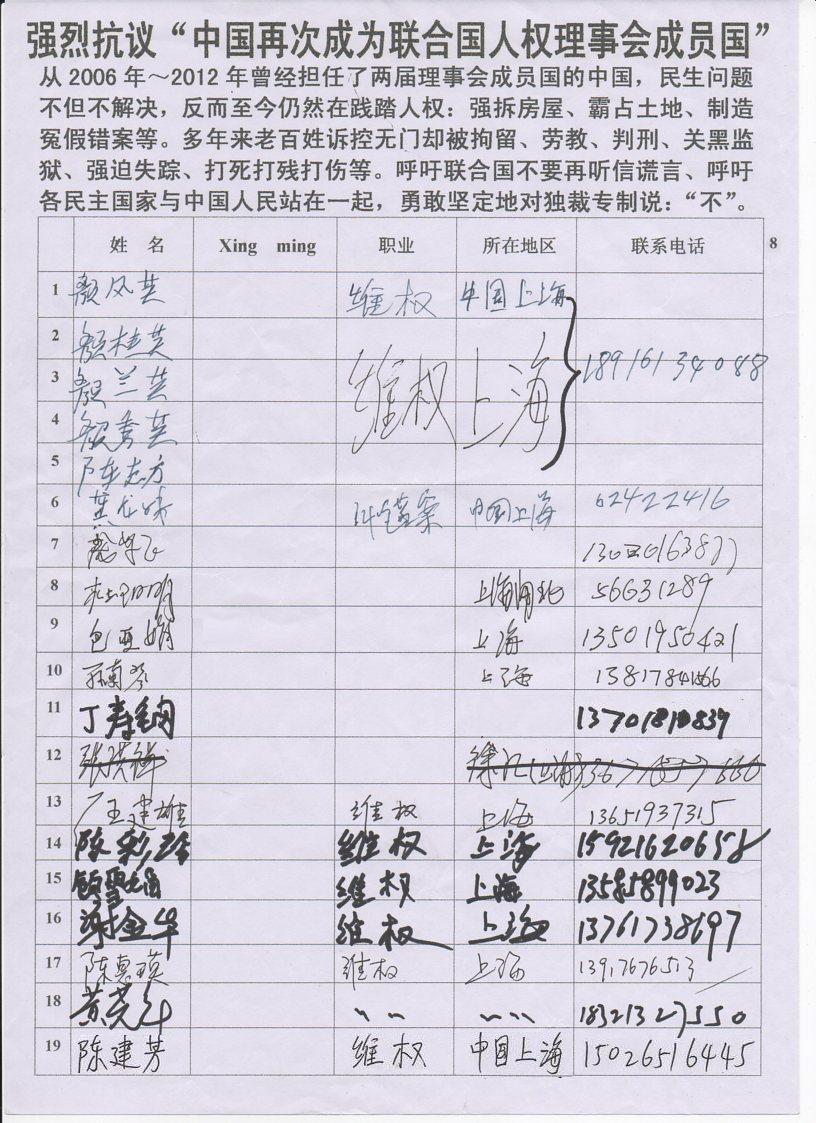 强烈抗议“中国再次成为联合国人权理事会成员国”
从 2006 年～2012 年曾经担任了两届理事会成员国的中国，民生问题
不但不解决，反而至今仍然在践踏人权：强拆房屋、霸占土地、制造
冤假错案等。多年来老百姓诉控无门却被拘留、劳教、判刑、关黑监
狱、强迫失踪、打死打残打伤等。呼吁联合国不要再听信谎言、呼吁
各民主国家与中国人民站在一起，勇敢坚定地对独裁专制说：“不”。
姓 名 Xing ming 职业 所在地区 联系电话 8
1 颜凤英 维权 中国上海
2 颜桂英
3 颜兰英 维权 上海 18916134088
4 颜秀英
5 陈志方
6 中国上海 62422416
7
8 上海闸北 56631289
9 包亚娟 上海 13501950421
10 上海
11 丁寿 13701810839
12
13 王建雄 维权 上海 13651937315
14 陈彩 维权 上海 15921620658
15 顾雪 维权 上海 13585899023
16 谢金华 维权 上海 13761738697
17 陈惠瑛 维权 上海 13917676513
18 黄 〃 〃 18321327550
19 陈建芳 维权 中国上海 15026516445